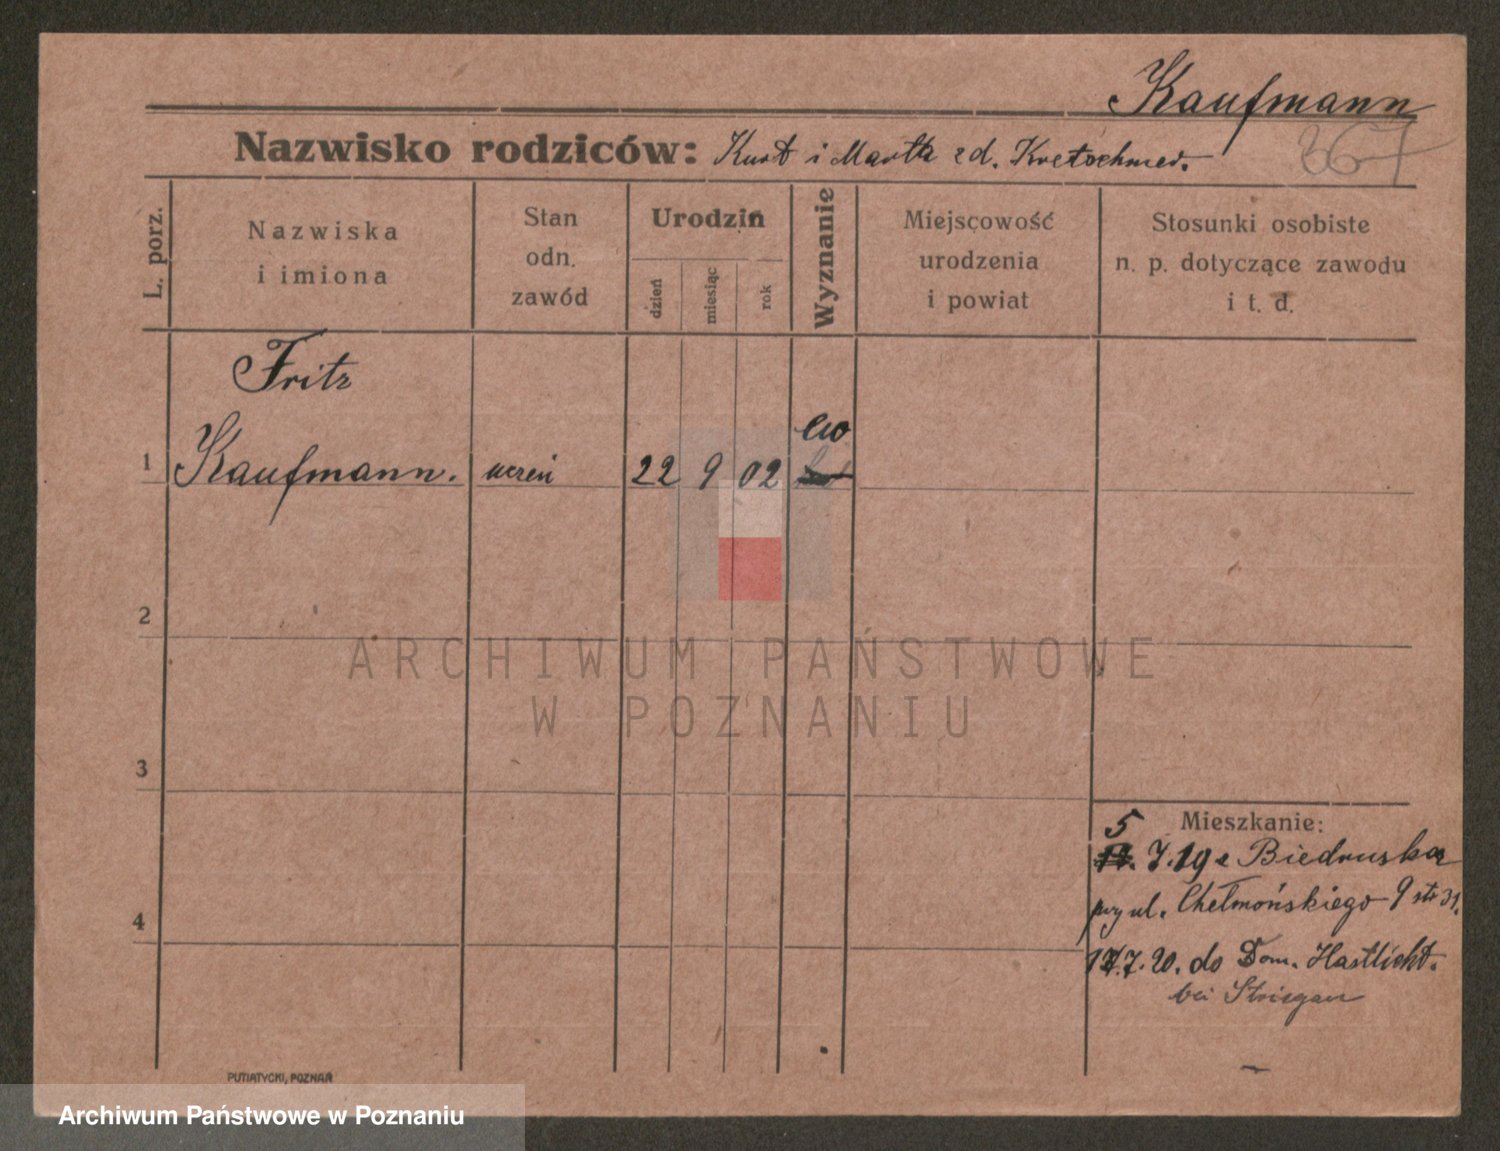 Kaufmann
367
Nazwisko rodziców: Kurt i Martha zd. Kretschmer.
L. porz.
Nazwiska
i imiona
Stan
odn.
zawód
Urodzin
dzień
miesiąc
rok
Wyznanie
Miejscowość
urodzenia
i powiat
Stosunki osobiste
n. p. dotyczące zawodu
i t. d.
Fritz
ew
1 Kaufmann. uczeń 22 9 02
2
ARCHIWUM PAŃSTWOWE
W POZNANIU
3
Mieszkanie:
5
7.19 z Biedruska
przy ul. Chełmońskiego 9 str 31.
4
17.7.20. do Dom. Hastlicht.
bei Striegau
PUTIATYCKI, POZNAŃ
Archiwum Państwowe w Poznaniu